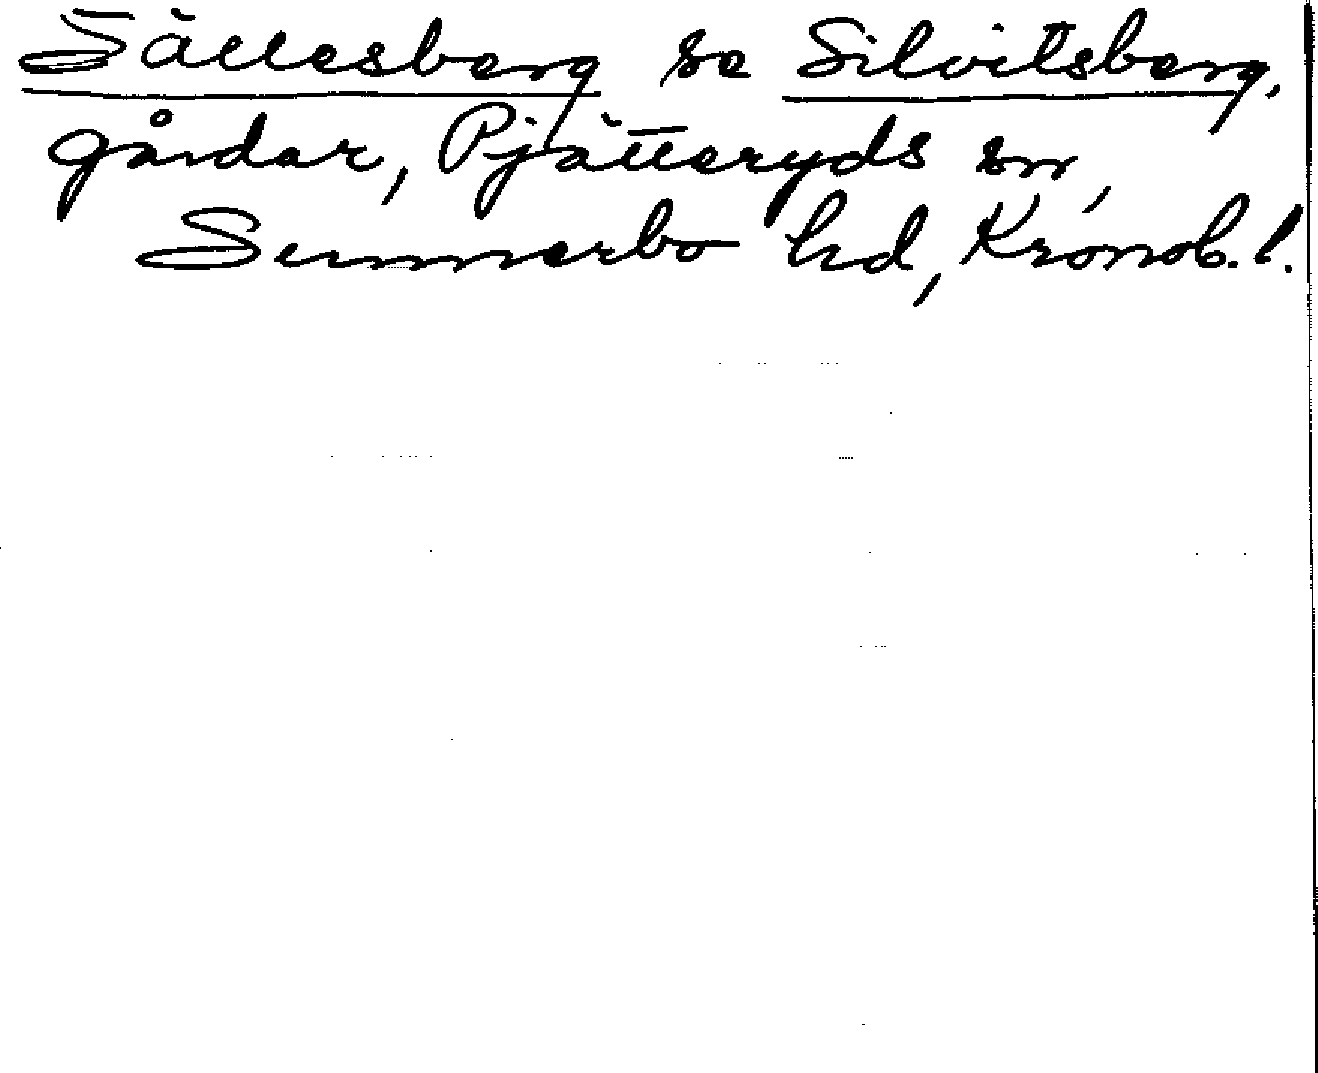 Sällesberg se Silvitsberg,
gårdar, Pjätteryds sn,
Sunnerbo hd, Kronob. l.